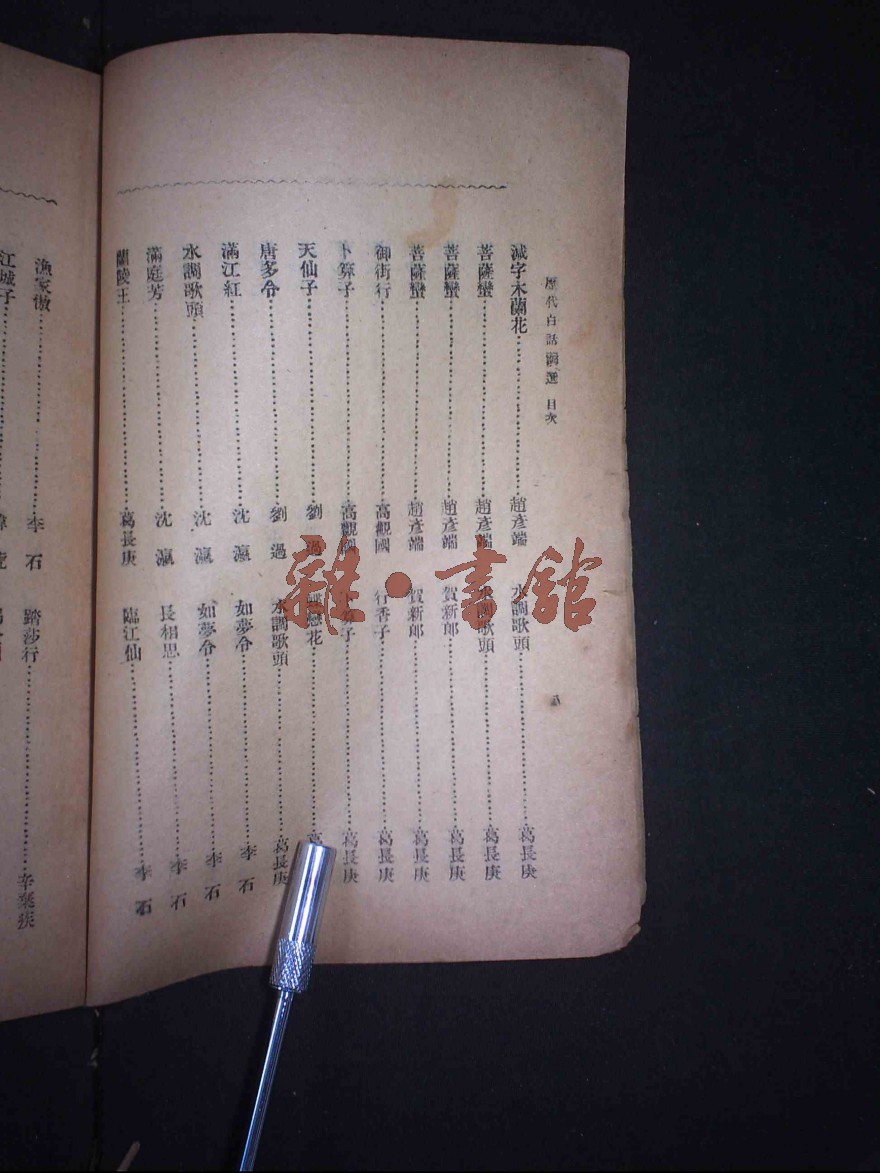 歷代白話詞選 目次
減字木蘭花……趙彥端 水調歌頭……葛長庚
菩薩蠻……趙彥端 水調歌頭……葛長庚
菩薩蠻……趙彥端 賀新郎……葛長庚
菩薩蠻……趙彥端 賀新郎……葛長庚
御街行……高觀國 行香子……葛長庚
卜算子……高觀國 卜算子……葛長庚
天仙子……劉過 蝶戀花……葛
唐多令……劉過 水調歌頭……葛長庚
滿江紅……沈瀛 如夢令……李石
水調歌頭……沈瀛 如夢令……李石
滿庭芳……沈瀛 長相思……李石
蘭陵王……葛長庚 臨江仙……李石
漁家傲……李石 踏莎行……辛棄疾
江城子……
雜·書館